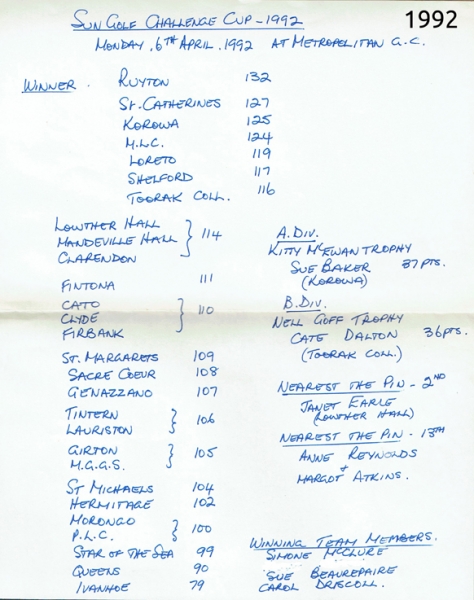 SUN GOLF CHALLENGE CUP - 1992
1992
MONDAY, 6TH APRIL, 1992 AT METROPOLITAN G.C.
WINNER. RUYTON 132
ST. CATHERINES 127
KOROWA 125
M.L.C. 124
LORETO 119
SHELFORD 117
TOORAK COLL. 116
LOWTHER HALL
MANDEVILLE HALL } 114
CLARENDON
FINTONA 111
CATO
CLYDE } 110
FIRBANK
ST. MARGARETS 109
SACRE COEUR 108
GENAZZANO 107
TINTERN
LAURISTON } 106
GIRTON
M.G.G.S. } 105
ST MICHAELS 104
HERMITAGE 102
MORONGO
P.L.C. } 100
STAR OF THE SEA 99
QUEENS 90
IVANHOE 79
A. DIV.
KITTY MCEWAN TROPHY
SUE BAKER 37 PTS.
(KOROWA)
B. DIV.
NELL GOFF TROPHY
CATE DALTON 36 PTS.
(TOORAK COLL.)
NEAREST THE PIN - 2ND
JANET EARLE
(LOWTHER HALL)
NEAREST THE PIN - 13TH
ANNE REYNOLDS
+
MARGOT ATKINS.
WINNING TEAM MEMBERS.
SIMONE MCCLURE
SUE BEAUREPAIRE
CAROL DRISCOLL.